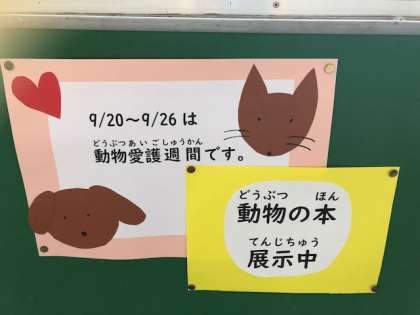 9/20～9/26は
どうぶつあいごしゅうかん
動物愛護週間です。
どうぶつ ほん
動物の本
てんじちゅう
展示中